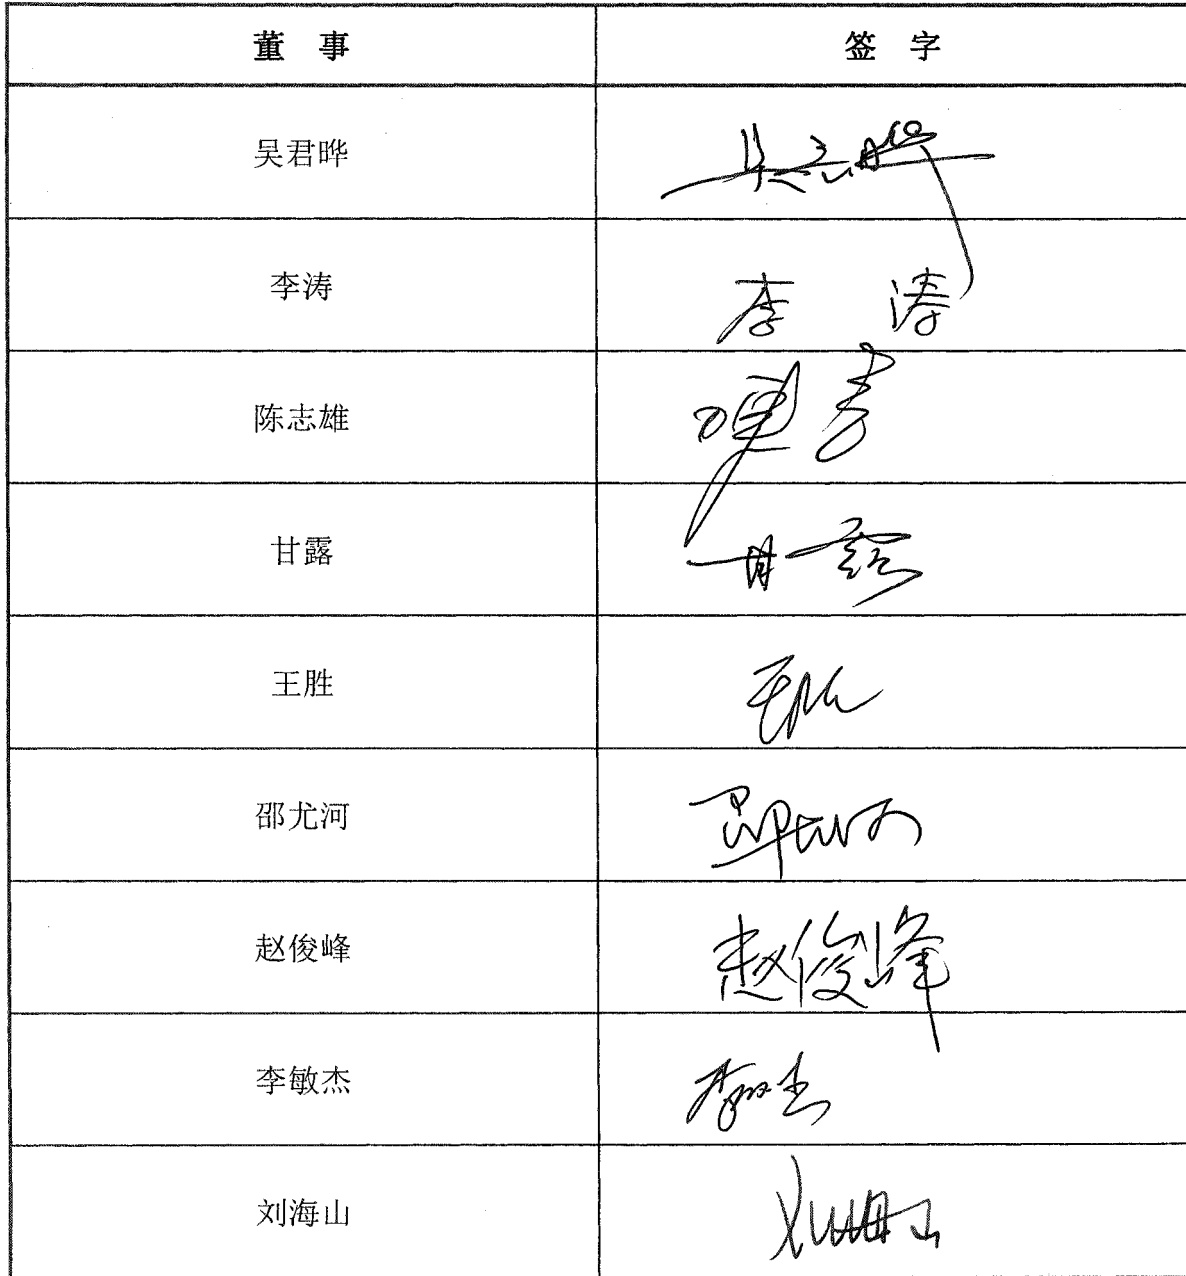 董 事 签 字
吴君晔 吴君晔
李涛 李 涛
陈志雄
甘露 甘露
王胜 王胜
邵尤河 邵尤河
赵俊峰 赵俊峰
李敏杰 李敏杰
刘海山 刘海山